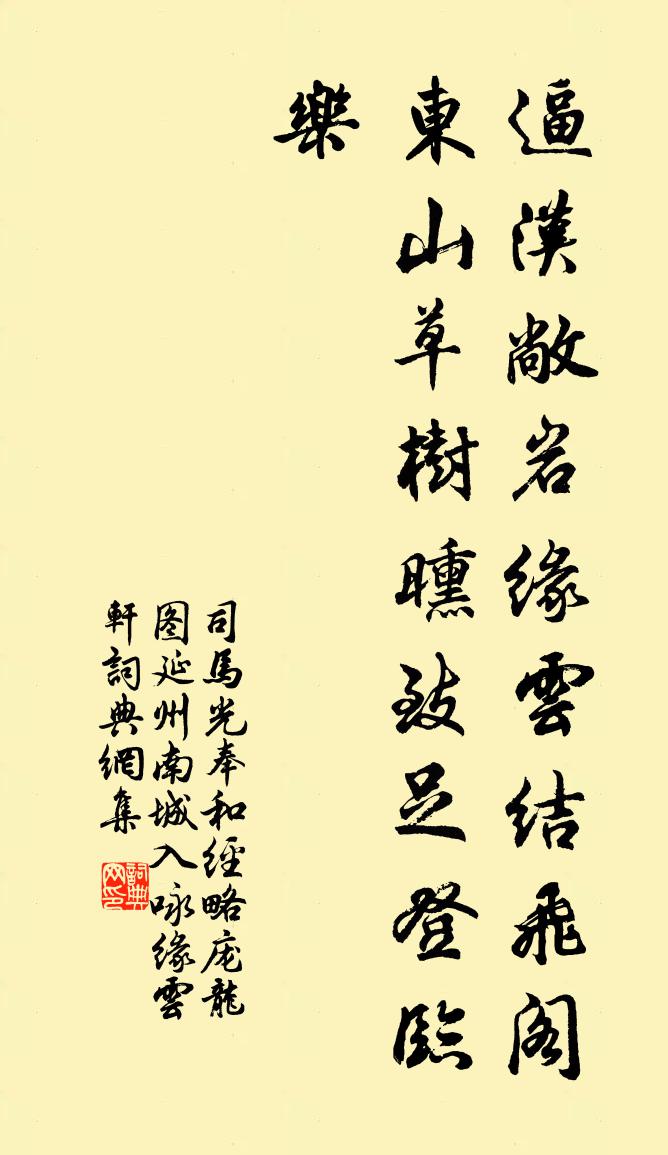 逼漢敞岩緣雲結飛閣
東山草樹曛致足登臨
樂
司馬光奉和經略庞龍
图延州南城入咏緣雲
軒詞典網集
詞典网印